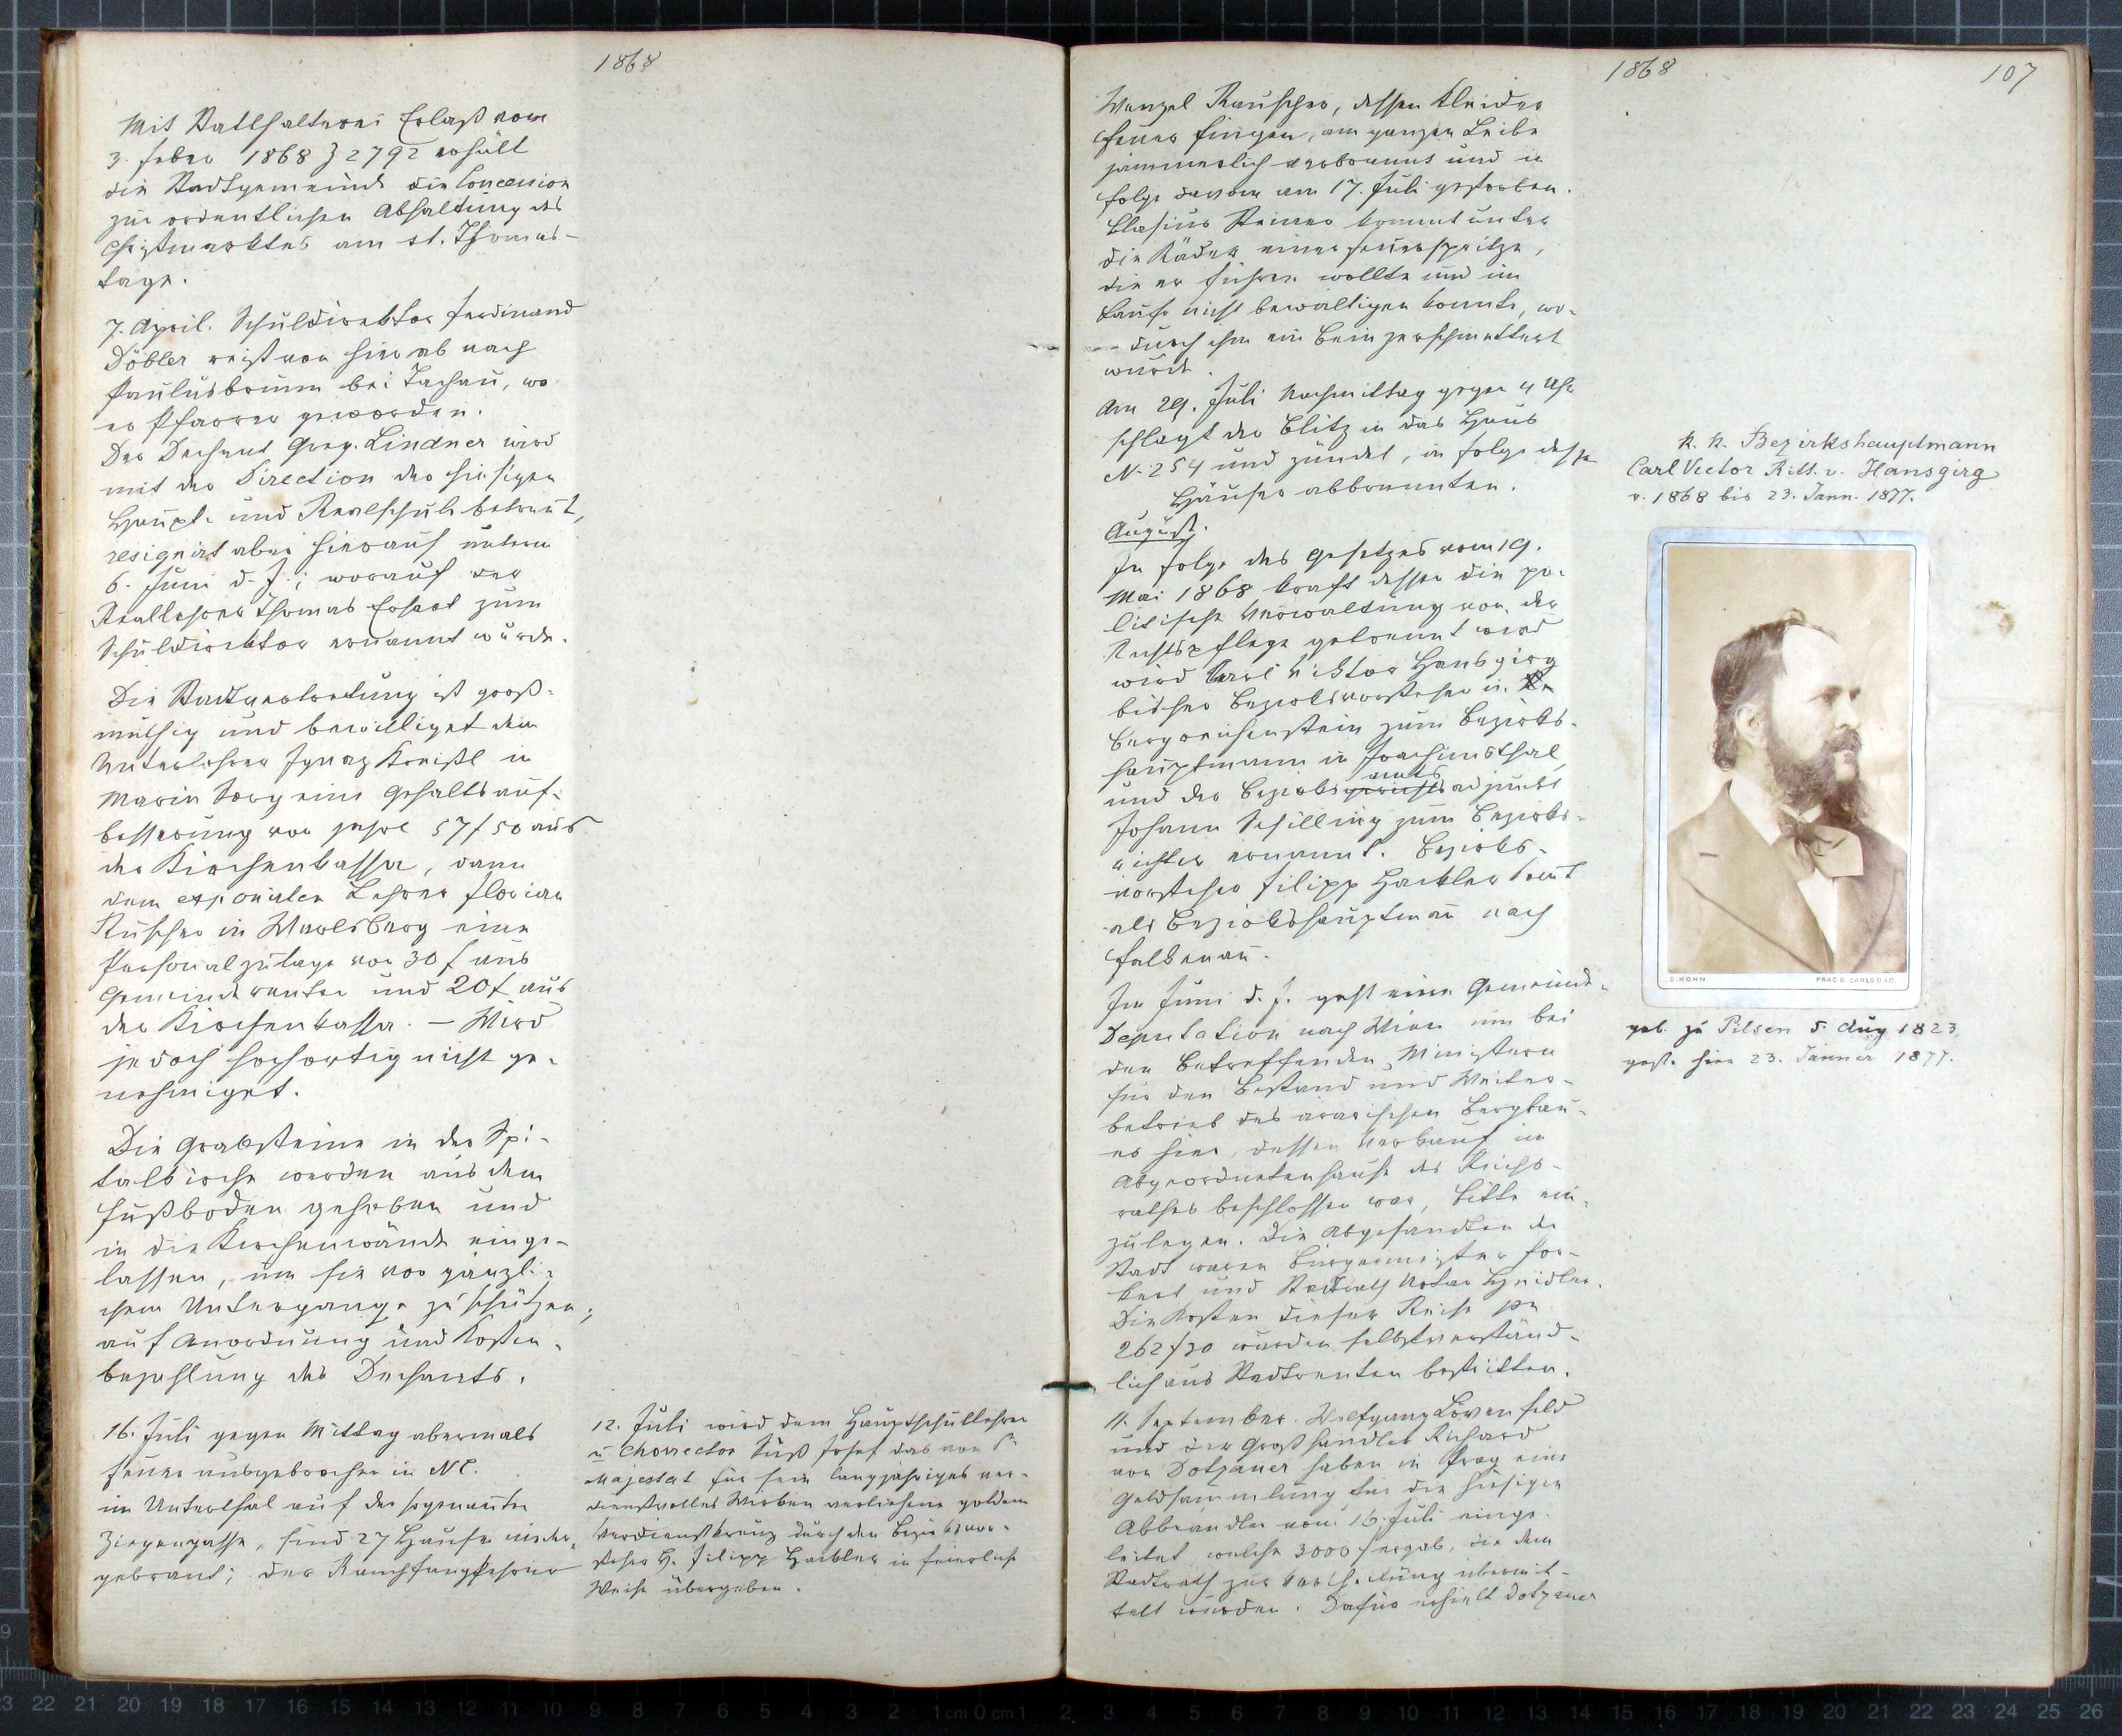 1868
Mit Statthalterei Erlaß vom
3. Feber 1868 Z 2792 erhält
die Stadtgemeinde die Concession
zur ordentlichen Abhaltung des
Christmarktes am st. Thomas-
tage.
7. April. Schuldirektor Ferdinand
Döbler reist von hier ab nach
Paulusbrunn bei Tachau, wo
er Pfarrer geworden.
Der Dechant Greg. Lindner wird
mit der Direction der hiesigen
Haupt- und Realschule betraut,
resignirt aber hierauf unterm
6. Juni d. J.; worauf der
Reallehrer Thomas Erhart zum
Schuldirektor ernannt wurde.
Die Stadtvertretung ist groß-
müthig und bewilliget dem
Unterlehrer Ignaz Kreißl in
Maria Sorg eine Gehaltsauf-
besserung von jährl 57f 50 aus
der Kirchenkassa, dann
dem exponirten Lehrer Florian
in Werlsberg eine
Personalzulage von 30 f aus
Gemeinderenten und 20f aus
der Kirchenkassa. – Wird
jedoch hochortig nicht ge-
nehmiget.
Die Grabsteine in der Spi-
talkirche werden aus dem
Fußboden gehoben und
in die Kirchenwände einge-
lassen, um sie vor gänzli-
chem Untergange zu schützen;
auf Anordnung und Kosten-
bezahlung des Dechants.
16. Juli gegen Mittag abermals
Feuer ausgebrochen in NC.
im Unterthal auf der sogenannten
Ziegengasse, sind 27 Häuser nieder-
gebrant; der Rauchfangkehrer
12. Juli wird dem Hauptschullehrer
u Chorrector Süß Josef das von Sr
Majestät für sein langjähriges ver-
dienstvolles Wirken verliehene goldene
Verdienstkreuz durch den Bezirksvor-
steher H. Filipp Hackler in feierlicher
Weise übergeben.
1868
107
Wenzel Rauscher, dessen Kleider
Feuer fingen, am ganzen Leibe
jämmerlich verbrannt und in
Folge davon am 17. Juli gestorben.
Blasius Steiner kommt unter
die Räder einer Feuerspritze,
die er führen wollte und im
Laufe nicht bewältigen konnte, wo-
durch ihm ein Bein zerschmettert
wurde.
Am 29. Juli Nachmittag gegen 4 Uhr
schlagt der Blitz in das Haus
N. 254 und zündet, in Folge dessen
Häuser abbrannten.
August.
In Folge des Gesetzes vom 19.
Mai 1868 kraft dessen die po-
litische Verwaltung von der
Rechtspflege getrennt wird
wird Karl Viktor Hansgirg
bisher Bezirksvorsteher in
Bergreichenstein zum Bezirks-
hauptmann in Joachimsthal
und der Bezirksgerichts amts adjunkt
Johann Schilling zum Bezirks-
richter ernannt. Bezirks-
vorsteher Filipp Hackler kömt
als Bezirkshauptmañ nach
Falkenau.
Im Juni d. J. geht eine Gemeinde-
Deputation nach Wien um bei
den betreffenden Ministern
für den Bestand und Weiter-
betrieb des ärarischen Bergbau-
es hier, dessen Verkauf im
Abgeordnetenhause des Reichs-
rathes beschlossen war, Bitte ein-
zulegen. Die Abgesandten der
Stadt waren Bürgermeister
und Stadtrath Notar Heidler.
Die Kosten dieser Reise pr
262f 30 wurden selbstverständ-
lich aus Stadtrenten bestritten.
11. September. Wolfgang Löwenfeld
und der Großhändler Richard
von Dotzauer haben in Prag eine
Geldsammlung für die hiesigen
Abbrändler vom 16. Juli einge-
leitet, welche 3000 f ergab, die dem
Stadtrath zur Vertheilung übermit-
telt wurden. Dafür erhielt Dotzauer
K. K. Bezirkshauptmann
Carl Victor Ritt. v. Hansgirg
v. 1868 bis 23. Jann. 1877.
S. KOHN PRAG & CARLSBAD.
geb. zu Pilsen 5. Aug 1823,
gest. hier 23. Jänner 1877.